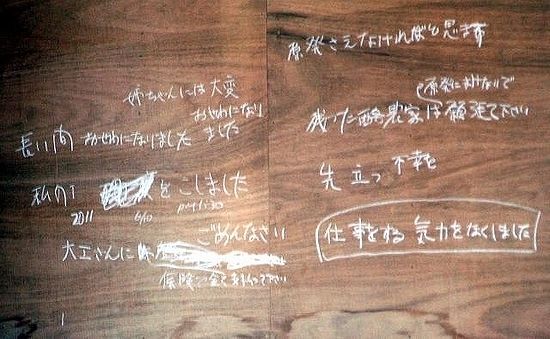 原発さえなければと思います
原発にまけないで
残った酪農家は願張て下さい
先立つ不幸を
仕事をする気力をなくしました
姉ちゃんには大変
おせわになり
ました
長い間おせわになりました
私の をこしました
2011 6/10 PM1:30
ごめんなさい
大工さんに
保険で全て支払って下さい